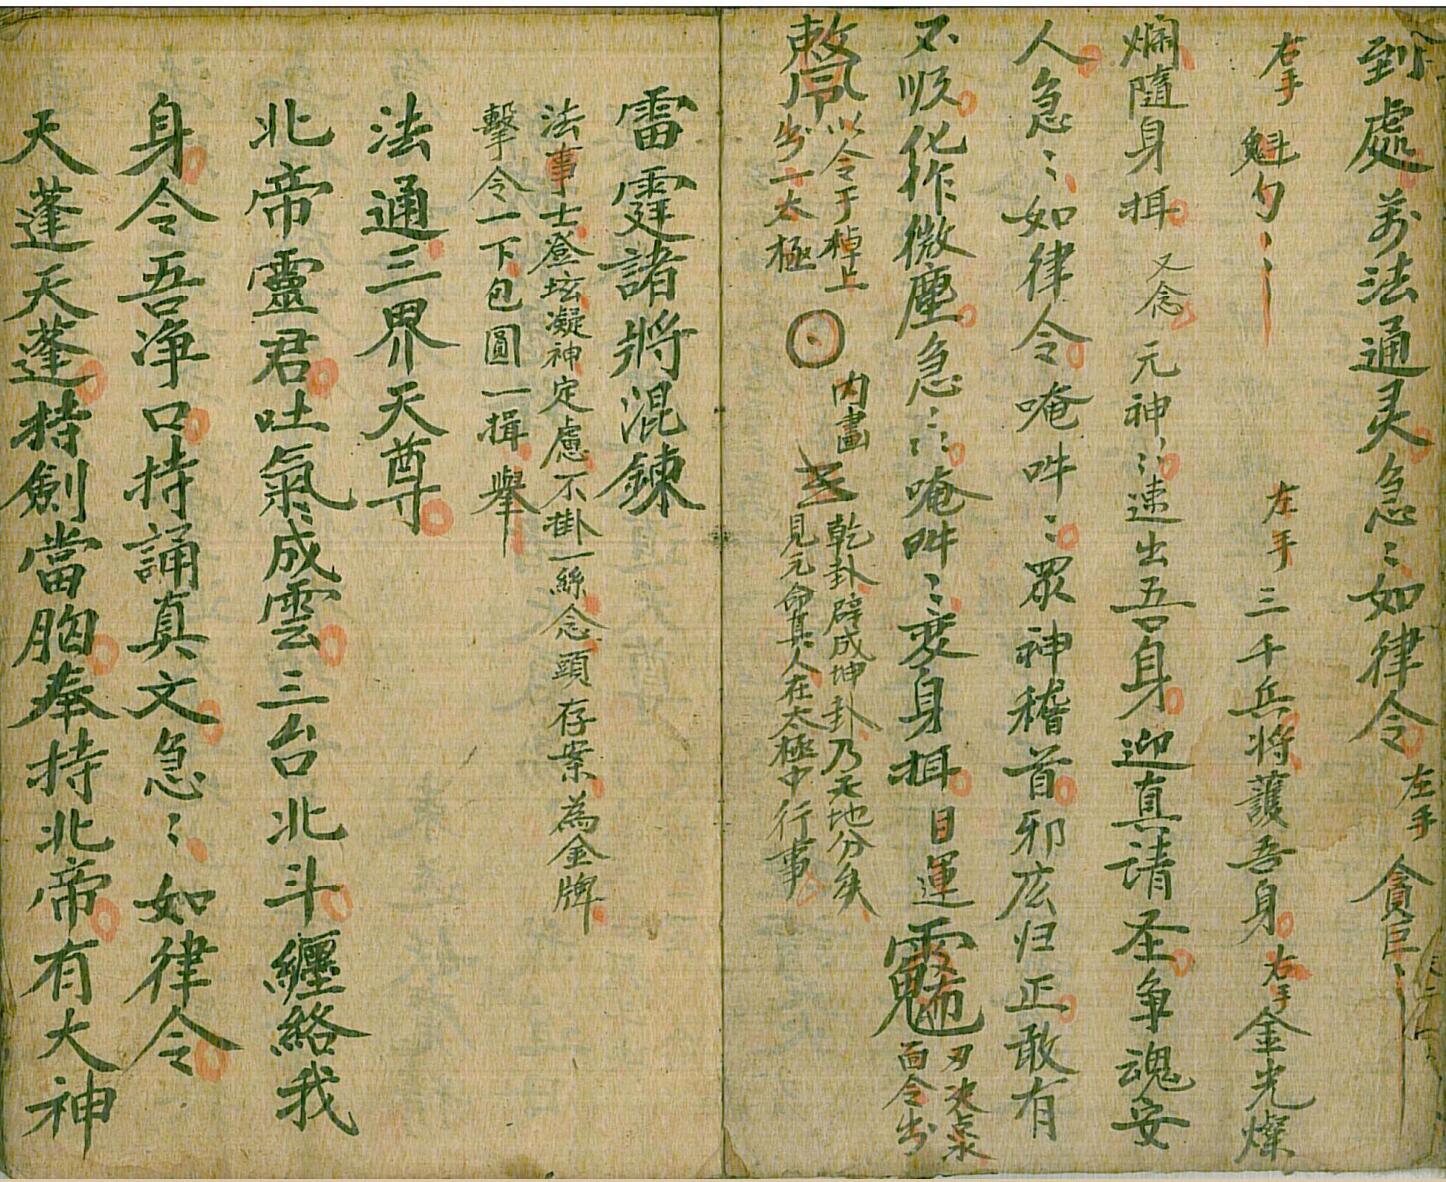 到處萬法通灵急〻如律令 左手 貪巨〻
右手 魁勺〻 左手 三千兵将護吾身 右手 金光燦
爛隨身揖 又念 元神〻速出吾身迎真请圣争魂安
人急〻如律令唵吽〻眾神稽首邪庅归正敢有
不順化作微塵急〻唵吽〻变身揖目運
面令出
敕令
以令于棹上
出一太極
内畫
乾卦辟成坤卦乃天地分矣
見元命真人在太極中行事
雷霆諸將混鍊
法事士登坛凝神定慮不掛一絲念頭存案為金牌
擊令一下包圓一揖 舉
法通三界天尊
北帝靈君吐氣成雲三台北斗纒絡我
身令吾净口持誦真文急〻如律令
天蓬天蓬持劍當胸奉持北帝有大神